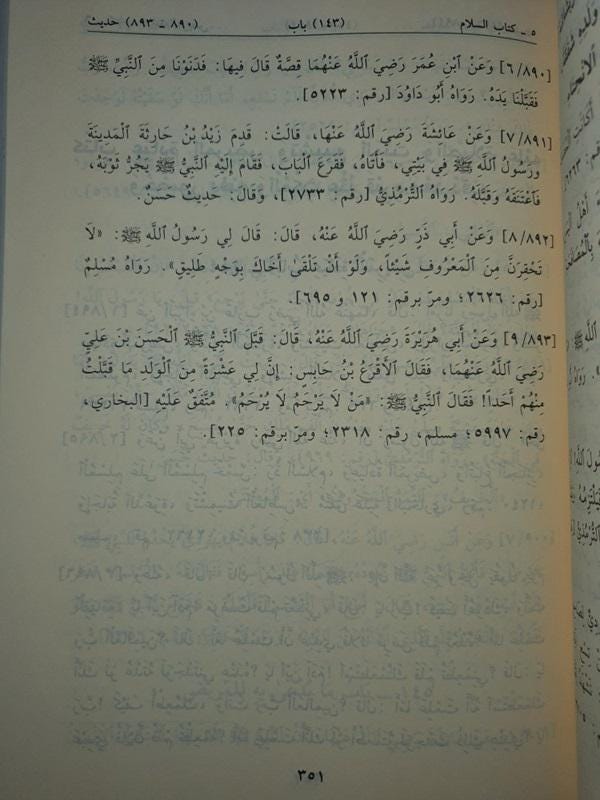 ٥ - كتاب السلام (١٤٣) باب (٨٩٠ - ٨٩٣) حديث
[٦/٨٩٠] وَعَنْ ٱبْنِ عُمَرَ رَضِيَ ٱللَّهُ عَنْهُمَا قِصَّةٌ قَالَ فِيهَا: فَدَنَوْنَا مِنَ ٱلنَّبِيِّ ﷺ
فَقَبَّلْنَا يَدَهُ. رَوَاهُ أَبُو دَاوُدَ [رقم: ٥٢٢٣].
[٧/٨٩١] وَعَنْ عَائِشَةَ رَضِيَ ٱللَّهُ عَنْهَا، قَالَتْ: قَدِمَ زَيْدُ بْنُ حَارِثَةَ ٱلْمَدِينَةَ
وَرَسُولُ ٱللَّهِ ﷺ فِي بَيْتِي، فَأَتَاهُ، فَقَرَعَ ٱلْبَابَ، فَقَامَ إِلَيْهِ ٱلنَّبِيُّ ﷺ يَجُرُّ ثَوْبَهُ،
فَٱعْتَنَقَهُ وَقَبَّلَهُ. رَوَاهُ ٱلتِّرْمِذِيُّ [رقم: ٢٧٣٣]، وَقَالَ: حَدِيثٌ حَسَنٌ.
[٨/٨٩٢] وَعَنْ أَبِي ذَرٍّ رَضِيَ ٱللَّهُ عَنْهُ، قَالَ: قَالَ لِي رَسُولُ ٱللَّهِ ﷺ: «لَا
تَحْقِرَنَّ مِنَ ٱلْمَعْرُوفِ شَيْئًا، وَلَوْ أَنْ تَلْقَىٰ أَخَاكَ بِوَجْهٍ طَلِيقٍ». رَوَاهُ مُسْلِمٌ
[رقم: ٢٦٢٦؛ ومرّ برقم: ١٢١ و ٦٩٥].
[٩/٨٩٣] وَعَنْ أَبِي هُرَيْرَةَ رَضِيَ ٱللَّهُ عَنْهُ، قَالَ: قَبَّلَ ٱلنَّبِيُّ ﷺ ٱلْحَسَنَ بْنَ عَلِيٍّ
رَضِيَ ٱللَّهُ عَنْهُمَا، فَقَالَ ٱلْأَقْرَعُ بْنُ حَابِسٍ: إِنَّ لِي عَشْرَةً مِنَ ٱلْوَلَدِ مَا قَبَّلْتُ
مِنْهُمْ أَحَدًا! فَقَالَ ٱلنَّبِيُّ ﷺ: «مَنْ لَا يَرْحَمْ لَا يُرْحَمْ». مُتَّفَقٌ عَلَيْهِ [البخاري،
رقم: ٥٩٩٧؛ مسلم، رقم: ٢٣١٨؛ ومرّ برقم: ٢٢٥].
٣٥١